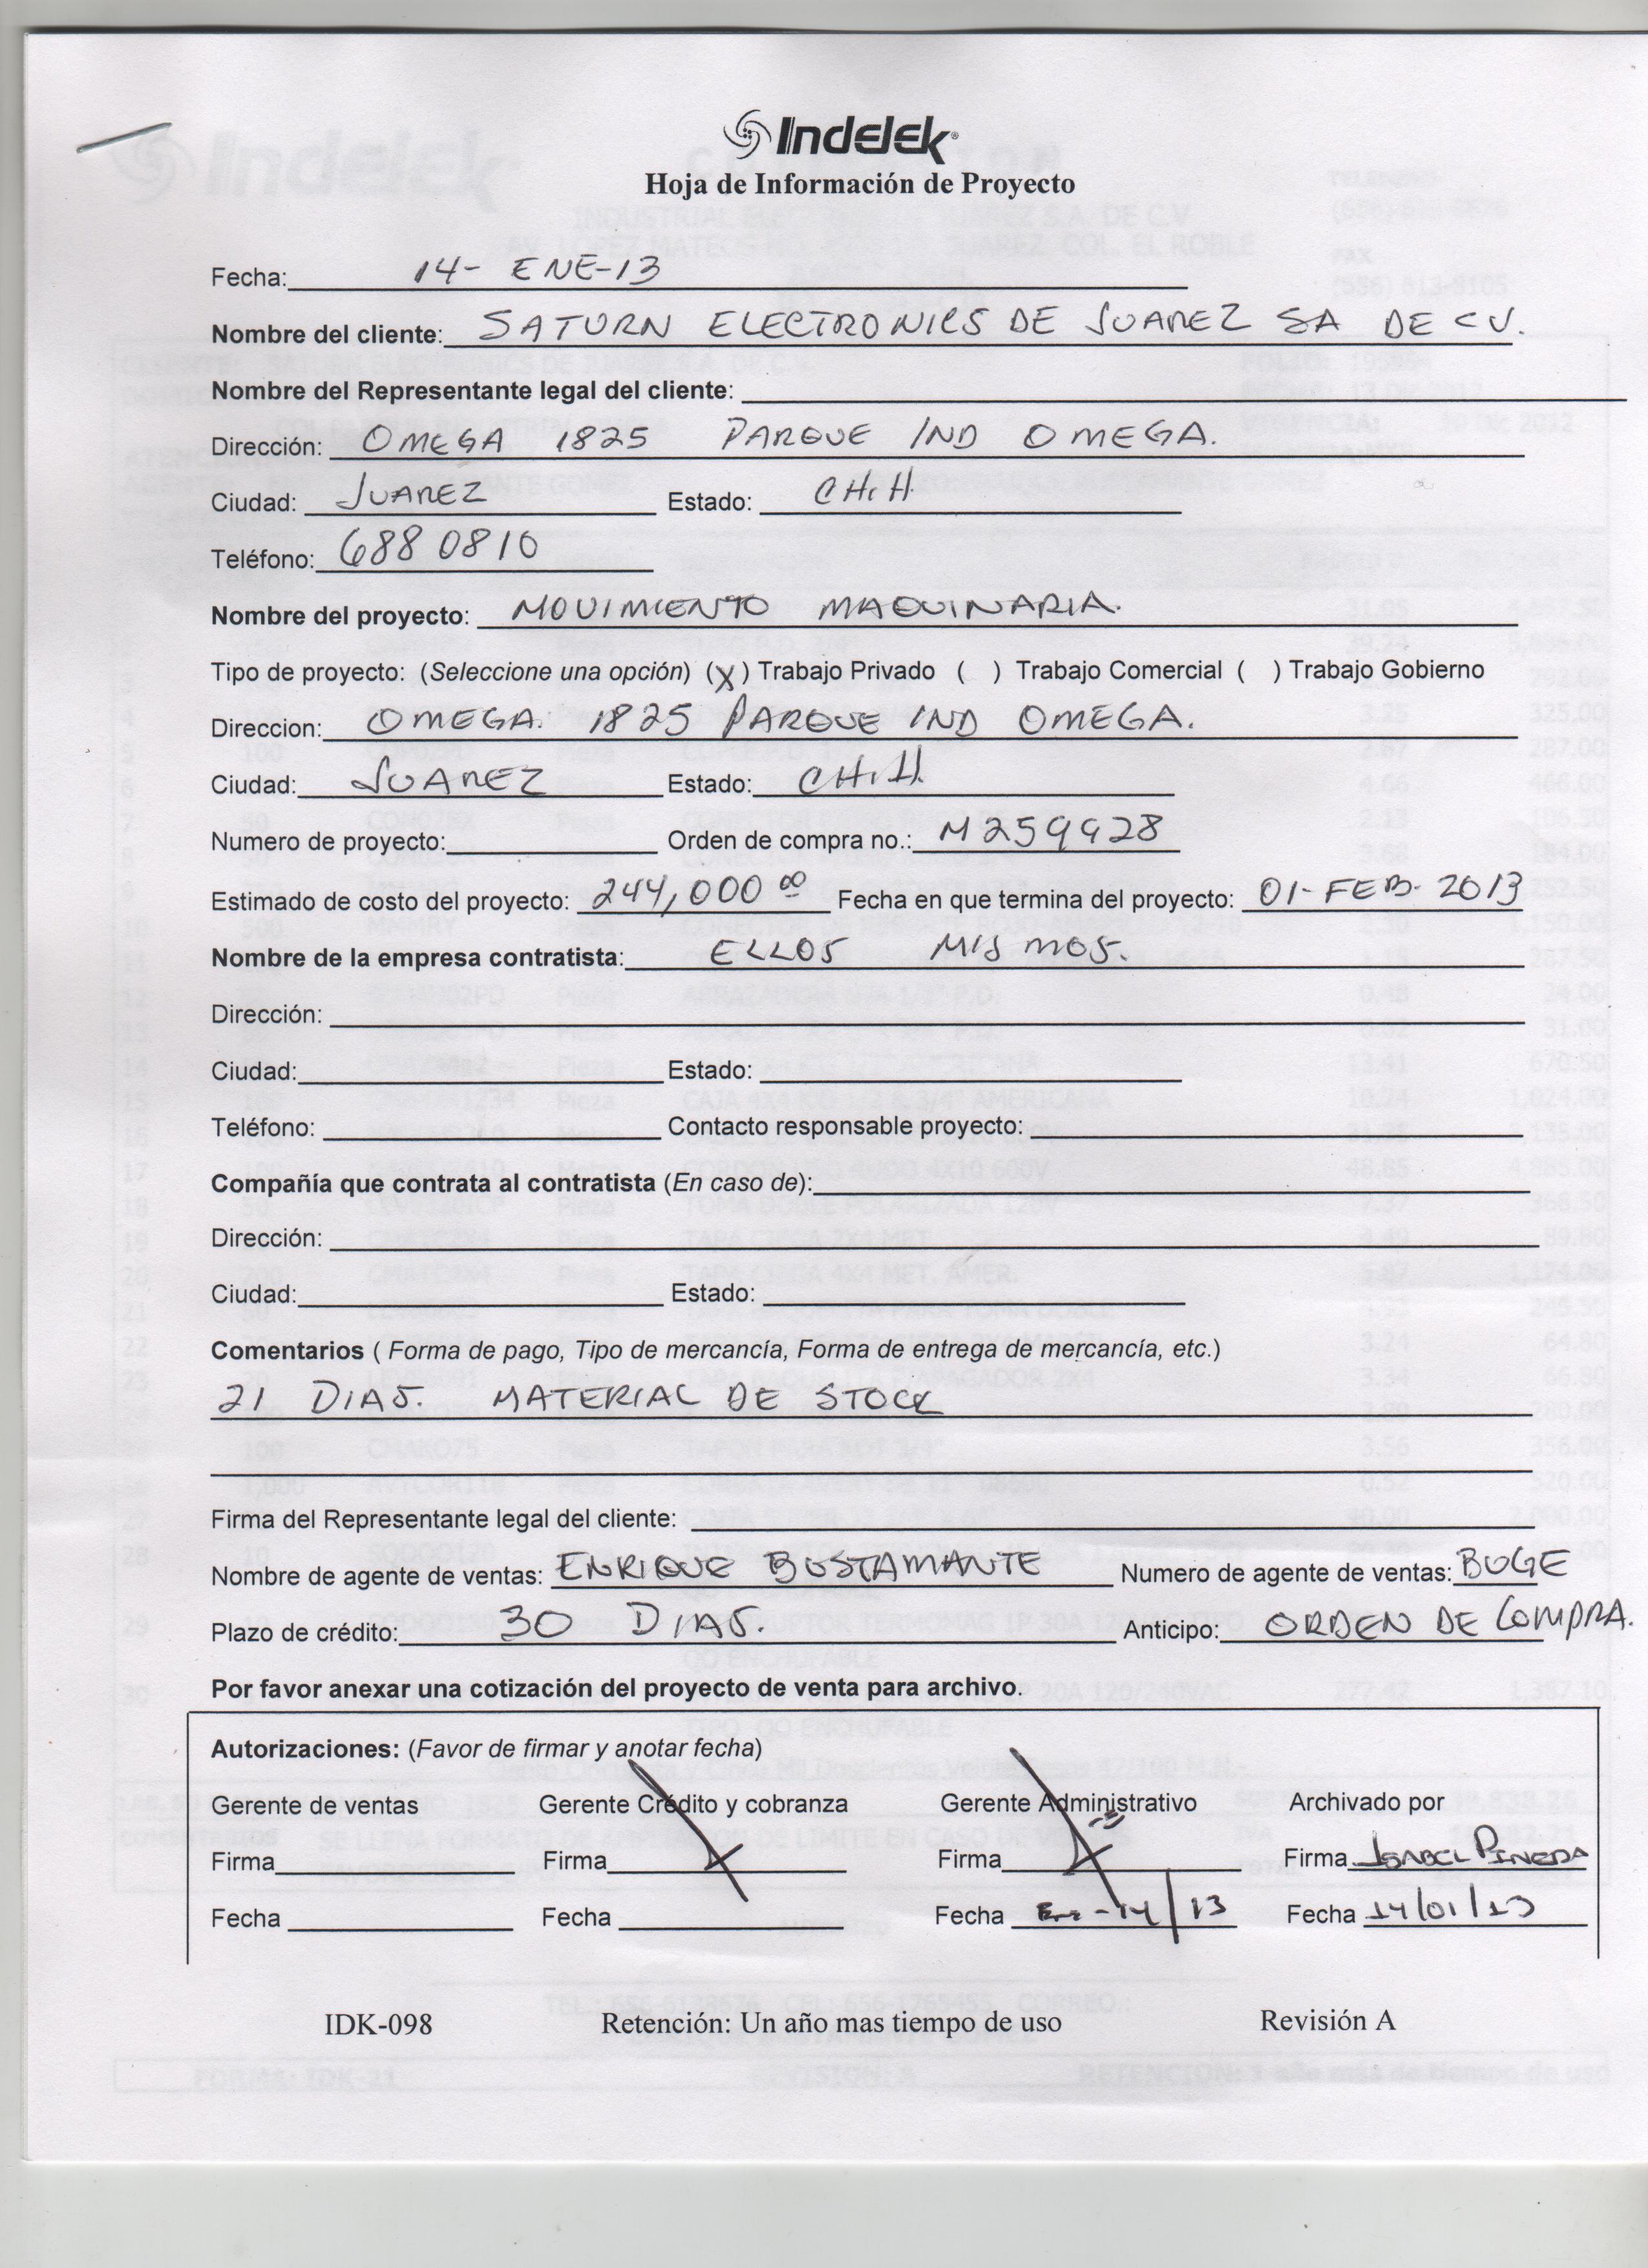 Indelek®
Hoja de Información de Proyecto
Fecha: 14- ENE-13
Nombre del cliente: SATURN ELECTRONICS DE JUAREZ SA DE CV.
Nombre del Representante legal del cliente:
Dirección: OMEGA 1825 PARQUE IND OMEGA.
Ciudad: JUAREZ Estado: CHIH
Teléfono: 688 0810
Nombre del proyecto: MOVIMIENTO MAQUINARIA.
Tipo de proyecto: (Seleccione una opción) (X) Trabajo Privado ( ) Trabajo Comercial ( ) Trabajo Gobierno
Direccion: OMEGA. 1825 PARQUE IND OMEGA.
Ciudad: JUAREZ Estado: CHIH
Numero de proyecto: Orden de compra no.: M259928
Estimado de costo del proyecto: 244,000 00 Fecha en que termina del proyecto: 01-FEB-2013
Nombre de la empresa contratista: ELLOS MISMOS.
Dirección:
Ciudad: Estado:
Teléfono: Contacto responsable proyecto:
Compañía que contrata al contratista (En caso de):
Dirección:
Ciudad: Estado:
Comentarios ( Forma de pago, Tipo de mercancía, Forma de entrega de mercancía, etc.)
21 DIAS. MATERIAL DE STOCK
Firma del Representante legal del cliente:
Nombre de agente de ventas: ENRIQUE BUSTAMANTE Numero de agente de ventas: BUGE
Plazo de crédito: 30 DIAS. Anticipo: ORDEN DE COMPRA.
Por favor anexar una cotización del proyecto de venta para archivo.
Autorizaciones: (Favor de firmar y anotar fecha)
Gerente de ventas Gerente Crédito y cobranza Gerente Administrativo Archivado por
Firma Firma Firma Firma ISABEL PINEDA
Fecha Fecha Fecha Ene-14/13 Fecha 14/01/13
IDK-098 Retención: Un año mas tiempo de uso Revisión A